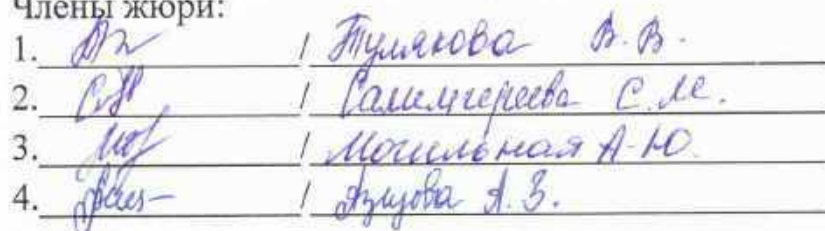 Члены жюри:
1. / Тулякова В. В.
2. / Салимгереева С. М.
3. / Могильная А. Ю.
4. / А. З.